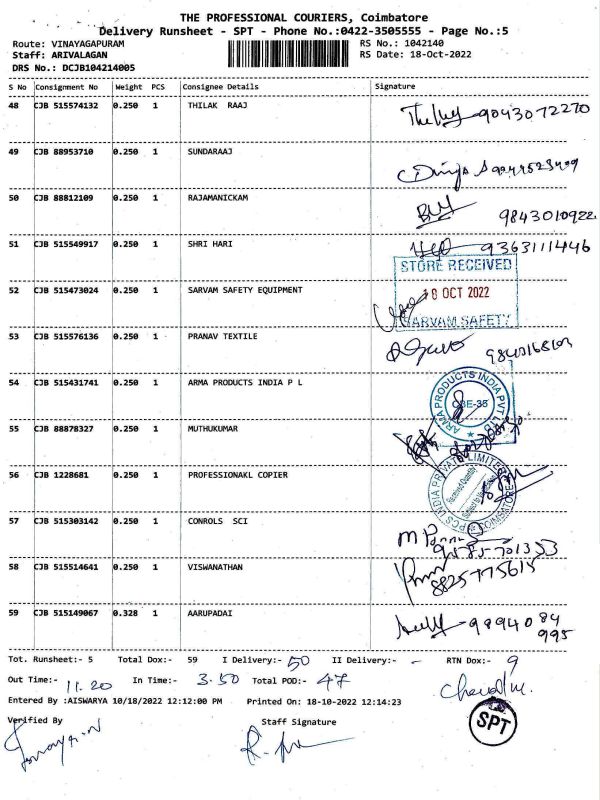 THE PROFESSIONAL COURIERS, Coimbatore
Delivery Runsheet - SPT - Phone No.:0422-3505555 - Page No.:5
Route: VINAYAGAPURAM RS No.: 1042140
Staff: ARIVALAGAN RS Date: 18-Oct-2022
DRS No.: DCJB104214005
S No Consignment No Weight PCS Consignee Details Signature
48 CJB 515574132 0.250 1 THILAK RAAJ 9043072270
49 CJB 88953710 0.250 1 SUNDARAAJ
50 CJB 88812109 0.250 1 RAJAMANICKAM 9843010922
51 CJB 515549917 0.250 1 SHRI HARI 9363111446
STORE RECEIVED
52 CJB 515473024 0.250 1 SARVAM SAFETY EQUIPMENT 18 OCT 2022
SARVAM SAFETY
53 CJB 515576136 0.250 1 PRANAV TEXTILE
54 CJB 515431741 0.250 1 ARMA PRODUCTS INDIA P L
ARMA PRODUCTS INDIA PVT LTD
CBE-35
55 CJB 88878327 0.250 1 MUTHUKUMAR
56 CJB 1228681 0.250 1 PROFESSIONAKL COPIER
PCS INDIA PRIVATE LIMITED COIMBATORE
57 CJB 515303142 0.250 1 CONROLS SCI
58 CJB 515514641 0.250 1 VISWANATHAN
59 CJB 515149067 0.328 1 AARUPADAI 9894084
995
Tot. Runsheet:- 5 Total Dox:- 59 I Delivery:- 50 II Delivery:- - RTN Dox:- 9
Out Time:- 11.20 In Time:- 3.50 Total POD:- 47
Entered By :AISWARYA 10/18/2022 12:12:00 PM Printed On: 18-10-2022 12:14:23
Verified By Staff Signature
SPT